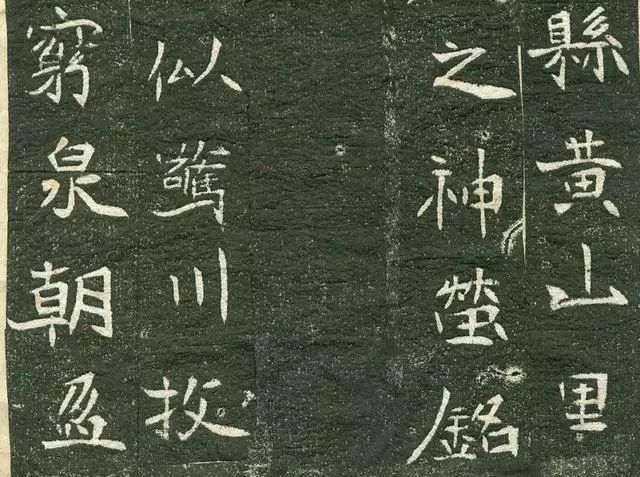 縣黃山里
之神塋銘
似驚川
窮泉朝盈